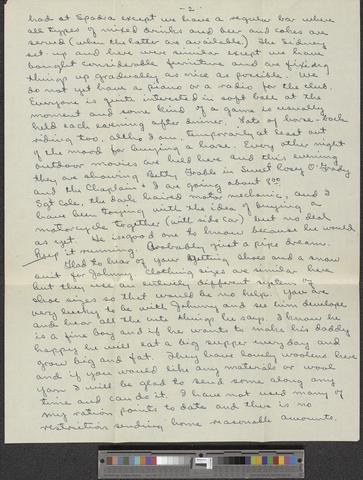 - 2 -
had at Spadra except we have a regular bar where
all types of mixed drinks and beer and cokes are
served (when the latter are available) The Sidney
set-up and here were similar except we have
bought considerable furniture and are fixing
things up gradually as nice as possible. We
do not yet have a piano or a radio for the club.
Everyone is quite interested in soft ball at the
moment and some kind of a game is usually
held each evening after dinner. Lots of horse-back
riding too, altho I am, temporarily at least out
of the mood for buying a horse. Every other night
outdoor movies are held here and this evening
they are showing Betty Grable in Sweet Rosy O'Grady
and the Chaplain & I are going about 8:00
Sgt Cole, the dark haired motor mechanic, and I
have been toying with the idea of buying a
motorcycle together (with side car) but no deal
as yet. He is a good one to know because he would
keep it running. Probably just a pipe dream.
Glad to hear of your getting shoes and a snow
suit for Johnny. Clothing sizes are similar here
but they use an entirely different system on
shoe sizes so that would be no help. You are
very lucky to be with Johnny and see him develope
and hear all the cute things he says. I know he
is a fine boy and if he wants to make his daddy
happy he will eat a big supper every day and
grow big and fat. They have lovely woolens here
and if you would like any materials or wool
yarn I will be glad to send some along any
time and can do it. I have not used many of
my ration points to date and there is no
restriction sending home reasonable amounts.